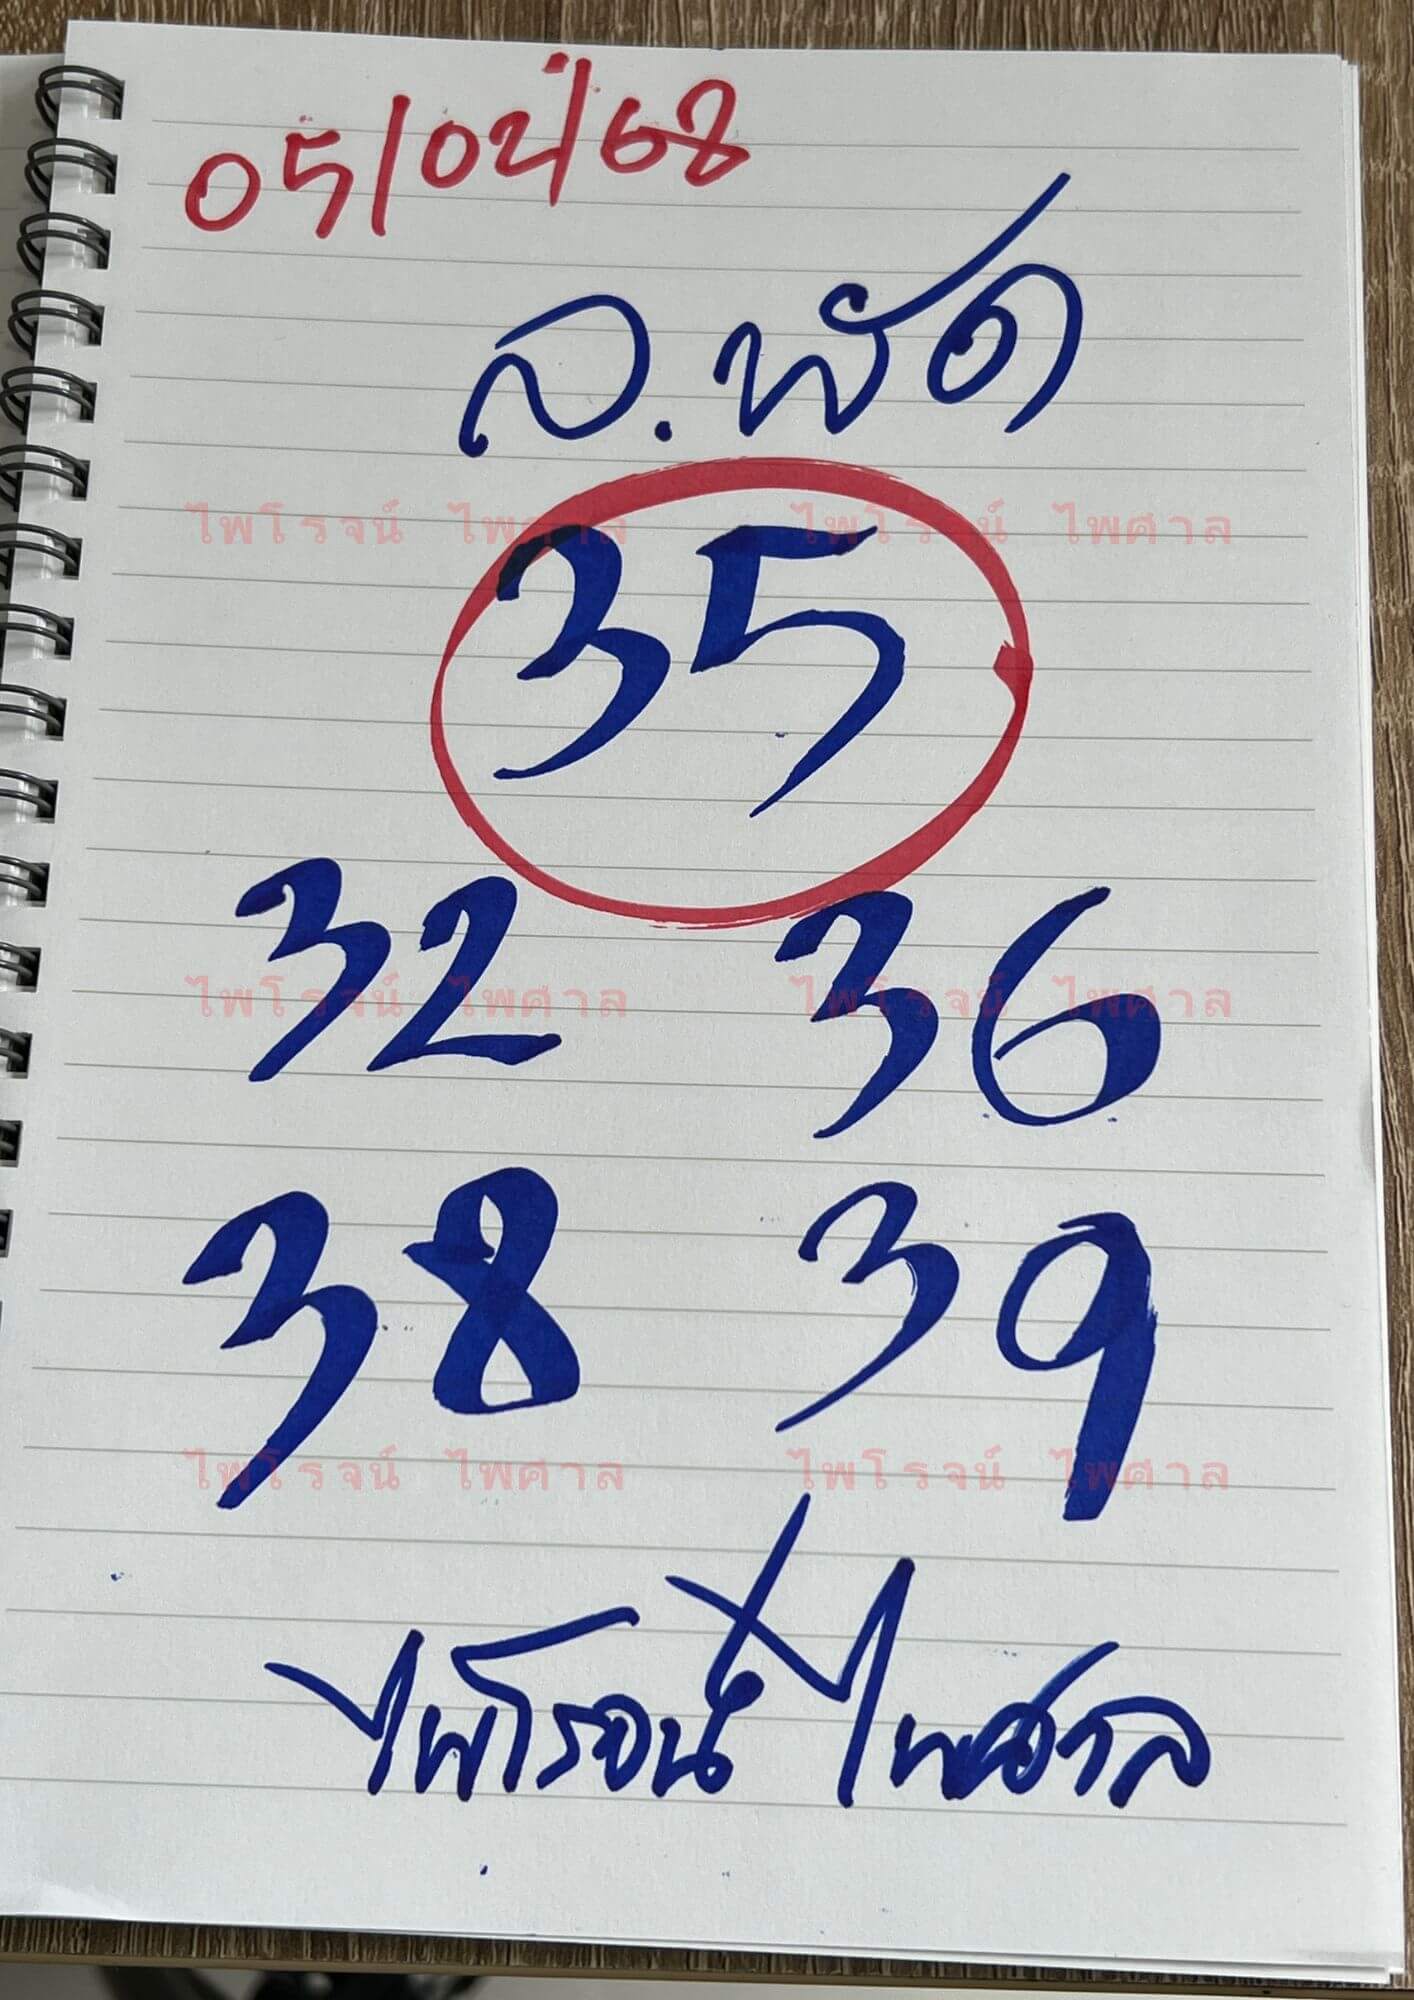 05/02/68
ล.พัด
ไพโรจน์ ไพศาล ไพโรจน์ ไพศาล
35
32 36
ไพโรจน์ ไพศาล ไพโรจน์ ไพศาล
38 39
ไพโรจน์ ไพศาล ไพโรจน์ ไพศาล
ไพโรจน์ ไพศาล